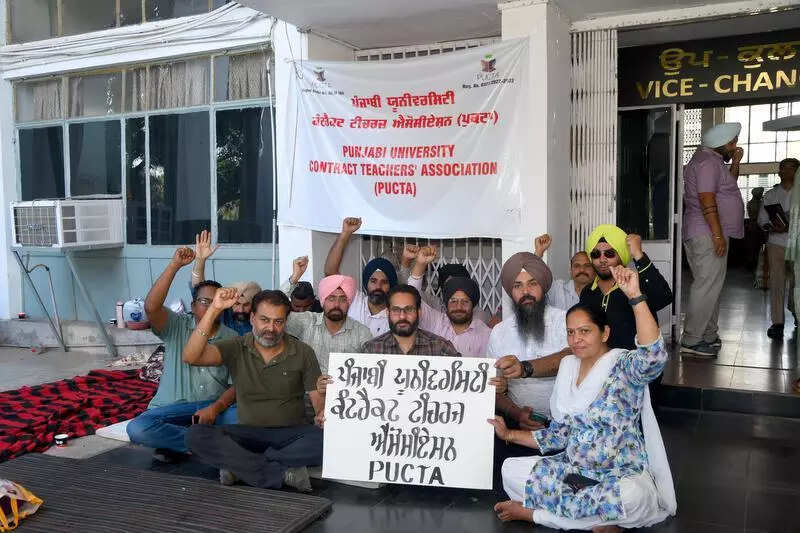 ਉਪ - ਕੁਲ
VICE-CHAN
PUCTA
ਪੰਜਾਬੀ ਯੂਨੀਵਰਸਿਟੀ
ਕੰਟਰੈਕਟ ਟੀਚਰਜ਼ ਐਸੋਸੀਏਸ਼ਨ (ਪੁਕਟਾ)
PUNJABI UNIVERSITY
CONTRACT TEACHERS' ASSOCIATION
(PUCTA)
ਪੰਜਾਬੀ ਯੂਨੀਵਰਸਿਟੀ
ਕੰਟਰੈਕਟ ਟੀਚਰਜ਼
ਐਸੋਸੀਏਸ਼ਨ
PUCTA